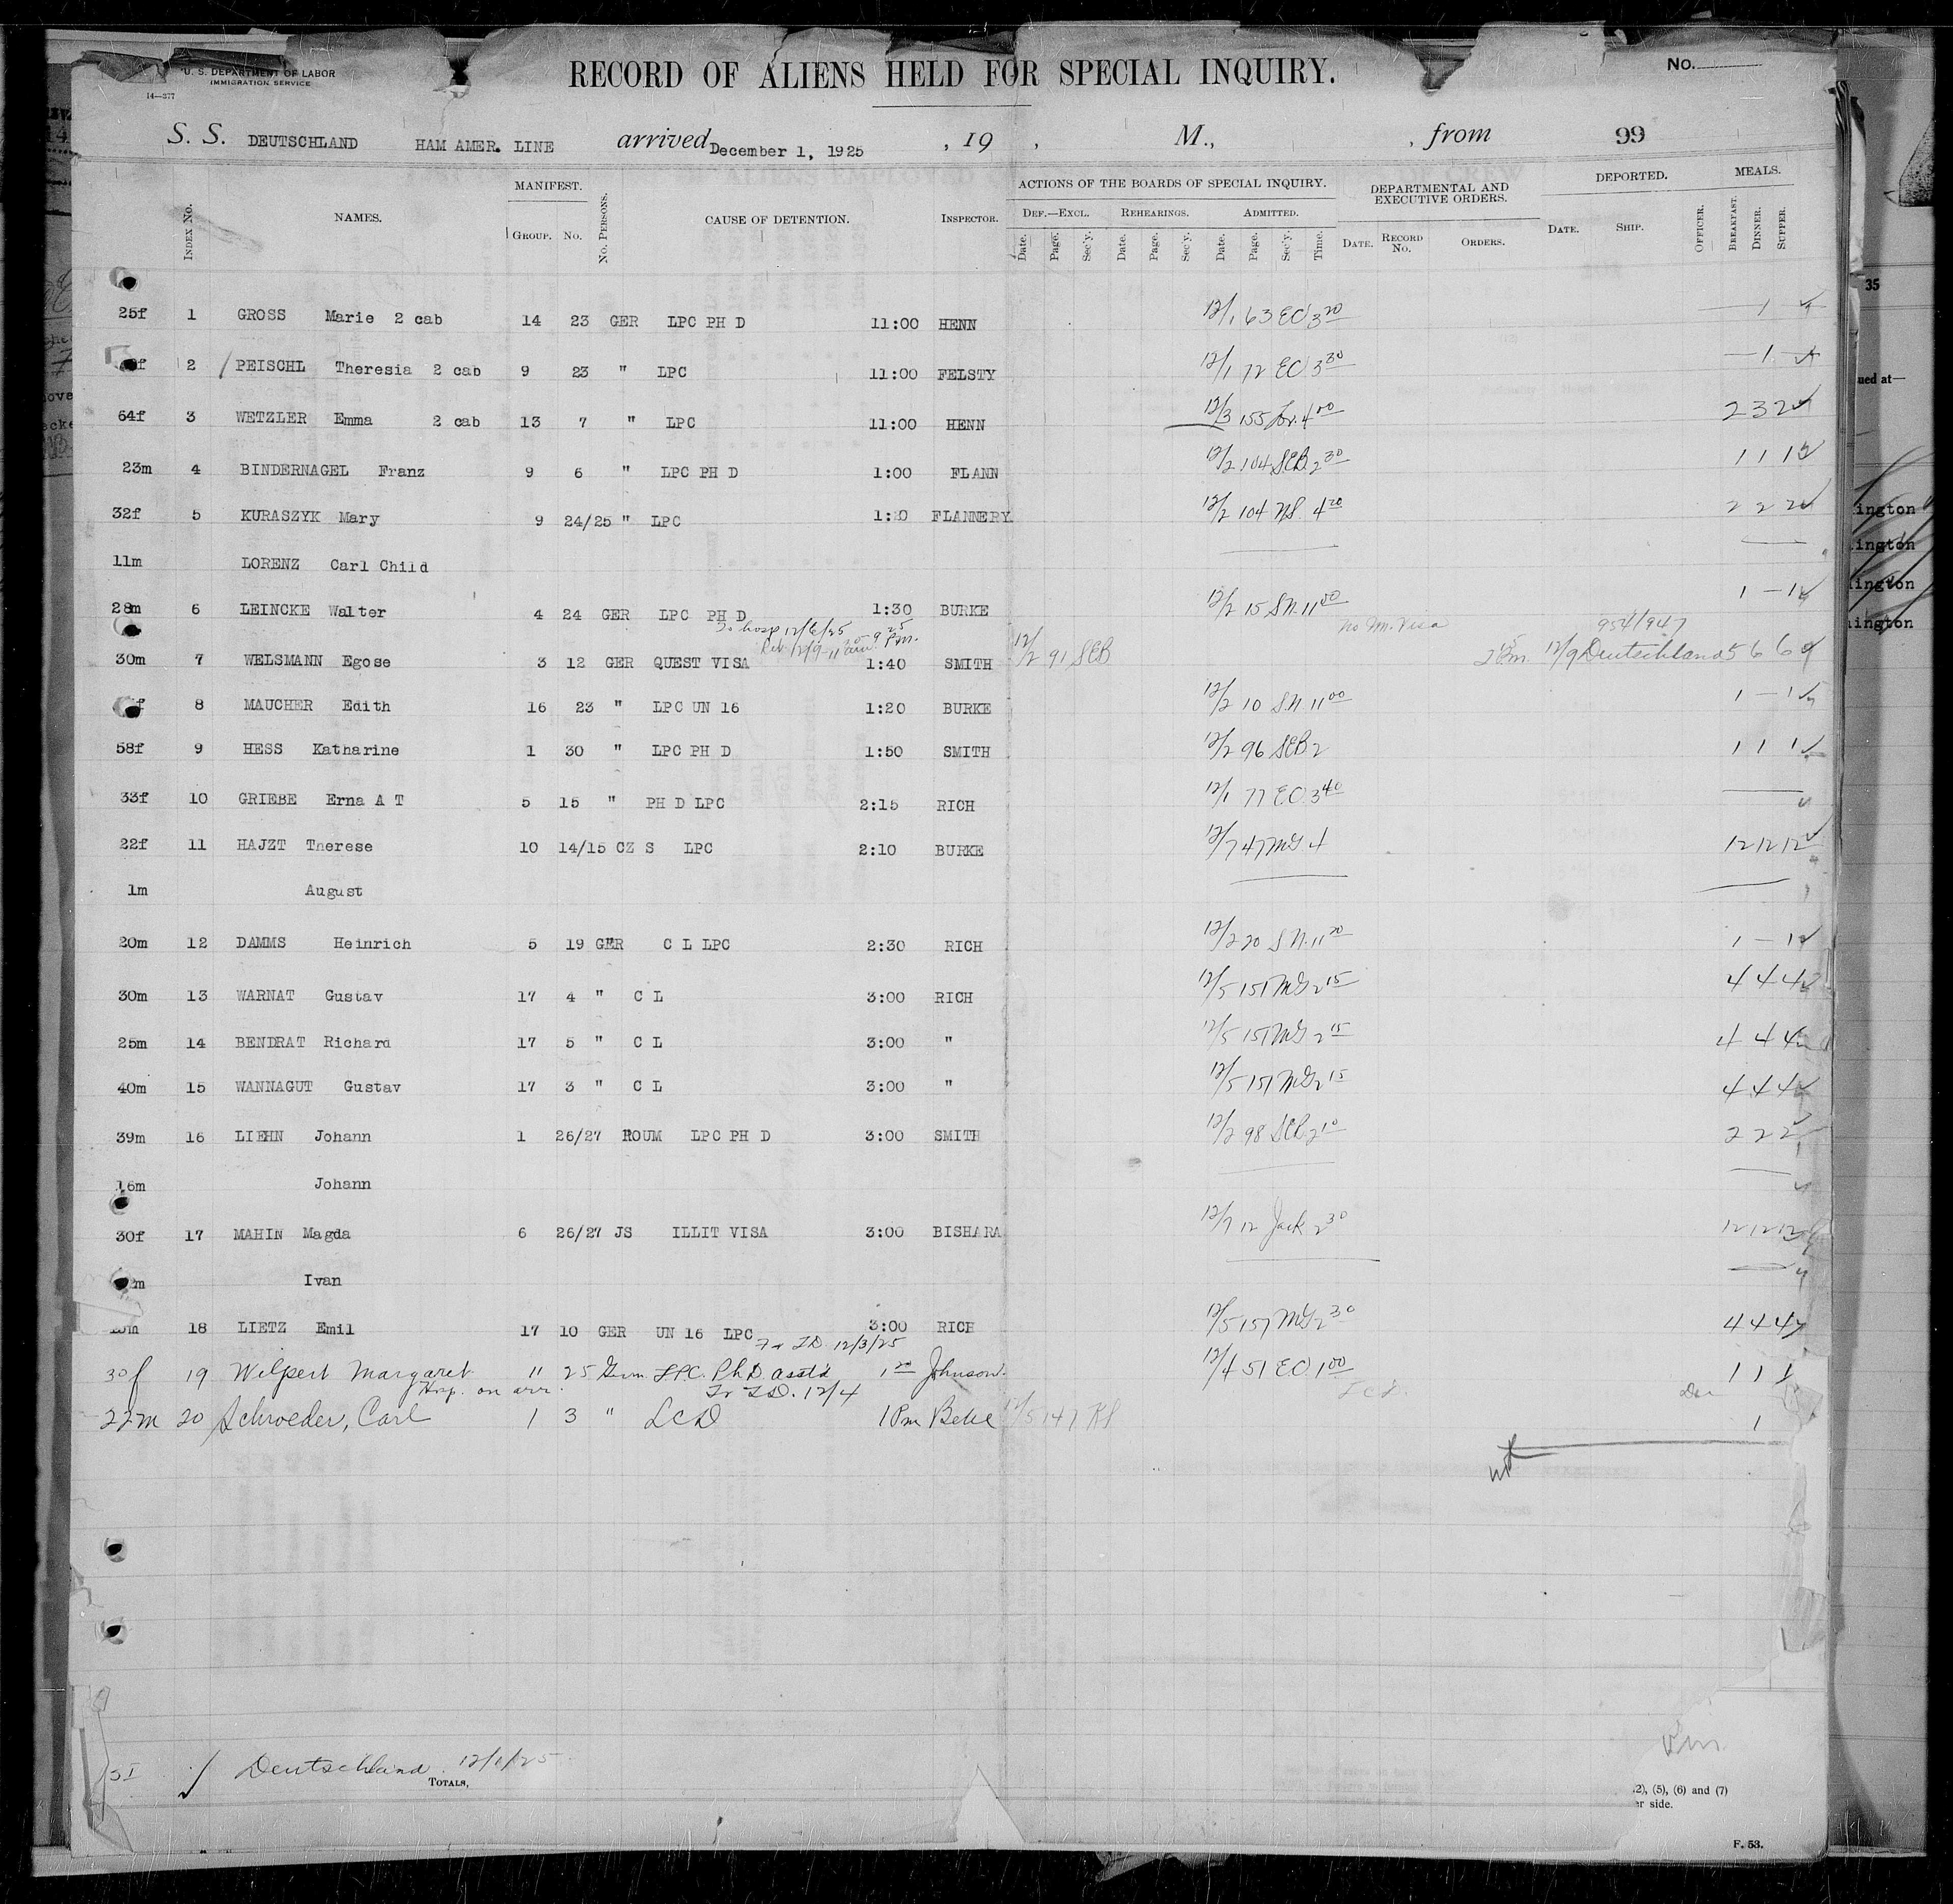 U. S. DEPARTMENT OF LABOR
IMMIGRATION SERVICE
14—377
RECORD OF ALIENS HELD FOR SPECIAL INQUIRY.
No.
S. S. DEUTSCHLAND HAM AMER. LINE arrived December 1, 1925 , 19 , M., , from 99
INDEX No. NAMES. MANIFEST. GROUP. No. No. PERSONS. CAUSE OF DETENTION. INSPECTOR. ACTIONS OF THE BOARDS OF SPECIAL INQUIRY. DEF.—EXCL. Date. Page. Sec'y. REHEARINGS. Date. Page. Sec'y. ADMITTED. Date. Page. Sec'y. Time. DEPARTMENTAL AND EXECUTIVE ORDERS. DATE. RECORD No. ORDERS. DEPORTED. DATE. SHIP. OFFICER. MEALS. BREAKFAST. DINNER. SUPPER.
25f 1 GROSS Marie 2 cab 14 23 GER LPC PH D 11:00 HENN 12/1 63 EC 3 20 — 1
f 2 PEISCHL Theresia 2 cab 9 23 " LPC 11:00 FELSTY 12/1 72 EC 3 30 — 1 —
64f 3 WETZLER Emma 2 cab 13 7 " LPC 11:00 HENN 12/3 155 4 00 2 3 2
23m 4 BINDERNAGEL Franz 9 6 " LPC PH D 1:00 FLANN 12/2 104 SEB 2 30 1 1 1
32f 5 KURASZYK Mary 9 24/25 " LPC FLANNERY 12/2 104 4 20 2 2 2
11m LORENZ Carl Child
28m 6 LEINCKE Walter 4 24 GER LPC PH D 1:30 BURKE 12/2 15 S.N. 11 00 1 — 1
To hosp 12/6/25 no Im. Visa 954/947
30m 7 WELSMANN Egose 3 12 GER QUEST VISA 1:40 SMITH 12/2 91 SEB 12/9 Deutschland 5 6 6
f 8 MAUCHER Edith 16 23 " LPC UN 16 1:20 BURKE 12/2 10 S.N. 11 00 1 — 1
58f 9 HESS Katharine 1 30 " LPC PH D 1:50 SMITH 12/2 96 SEB 2 1 1 1
33f 10 GRIEBE Erna A T 5 15 " PH D LPC 2:15 RICH 12/1 77 EC 3 40
22f 11 HAJZT Therese 10 14/15 CZ S LPC 2:10 BURKE 12/7 47 MG 4 12 12 12
1m August
20m 12 DAMMS Heinrich 5 19 GER C L LPC 2:30 RICH 12/2 20 S.N. 11 20 1 — 1
30m 13 WARNAT Gustav 17 4 " C L 3:00 RICH 12/5 151 MG 2 15 4 4 4
25m 14 BENDRAT Richard 17 5 " C L 3:00 " 12/5 151 MG 2 15 4 4 4
40m 15 WANNAGUT Gustav 17 3 " C L 3:00 " 12/5 151 MG 2 15 4 4 4
39m 16 LIEHN Johann 1 26/27 ROUM LPC PH D 3:00 SMITH 12/2 98 SEB 2 10 2 2 2
16m Johann
30f 17 MAHIN Magda 6 26/27 JS ILLIT VISA 3:00 BISHARA 12/7 12 Jack 2 30 12 12 12
m Ivan
18 LIETZ Emil 17 10 GER UN 16 LPC 3:00 RICH 12/5 157 MG 2 30 4 4 4
12/3/25
30f 19 Wilpert Margaret 11 25 Germ LPC. Ph.D. asst'd 1 Johnson 12/4 51 EC 1 00 1 1 1
Hosp. on arr. 12/4
22m 20 Schroeder, Carl 1 3 " LCD 1 Pm 12/5 147 1
SI Deutschland 12/1/25
TOTALS,
2), (5), (6) and (7)
er side.
F. 53.
35
ued at—
ington
ington
ington
ington